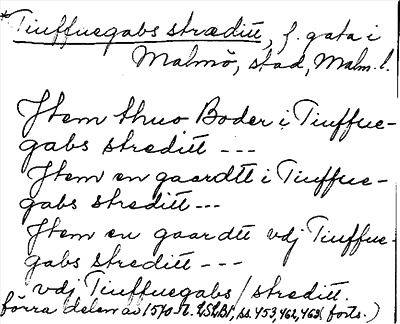 *Tiuffuegabs stræditt, f. gata i
Malmö, stad, Malm. l.
Jtem thuo Boder i Tiuffue-
gabs streditt ---
Jtem en gaardtt i Tiuffue-
gabs streditt ---
Jtem en gaardtt vdj Tiuffue-
gabs streditt ---
vdj Tiuffuegabs / streditt.
förra delen av 1570-t. ss. 453, 462, 463 (forts.)